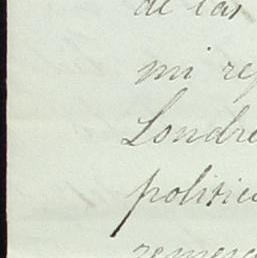 de las
mi re
Londre
politic